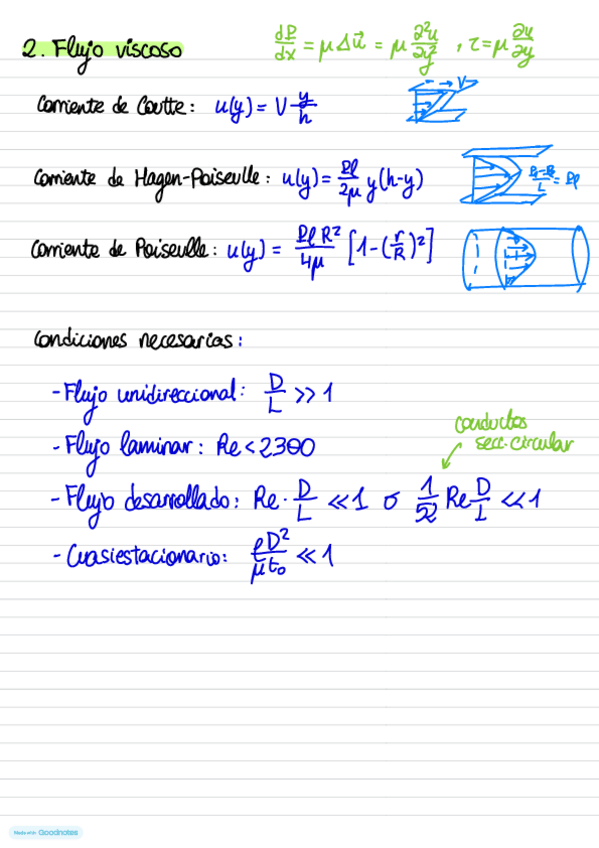 2. Flujo viscoso
dP/dx = μ Δu⃗ = μ ∂²u/∂y² , τ = μ ∂u/∂y
Corriente de Coutte: u(y) = V y/h
V
Corriente de Hagen-Poiseulle: u(y) = Pl/2μ y(h-y)
Corriente de Poiseulle: u(y) = Pl R²/4μ [1-(r/R)²]
Condiciones necesarias:
- Flujo unidireccional: D/L >> 1
- Flujo laminar: Re < 2300
conductos
secc. circular
- Flujo desarrollado: Re · D/L << 1 o 1/52 Re D/L << 1
- Cuasiestacionario: ρD²/μt₀ << 1
Made with Goodnotes